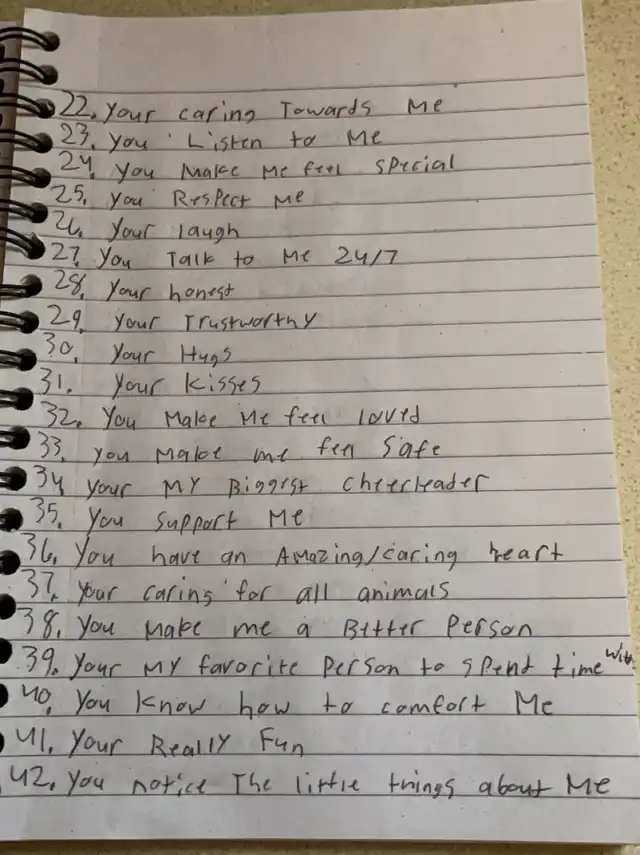 22. Your caring Towards Me
23. You Listen to Me
24. You Make Me feel special
25. You Respect Me
26. Your laugh
27. You Talk to Me 24/7
28. Your honest
29. Your Trustworthy
30. Your Hugs
31. Your kisses
32. You Make Me feel loved
33. You Make me feel Safe
34. Your MY Biggest Cheerleader
35. You Support Me
36. You have an Amazing/caring heart
37. Your caring for all animals
38. You Make me a Better Person
39. Your MY favorite Person to spend time with
40. You know how to comfort Me
41. Your Really Fun
42. You notice The little things about Me